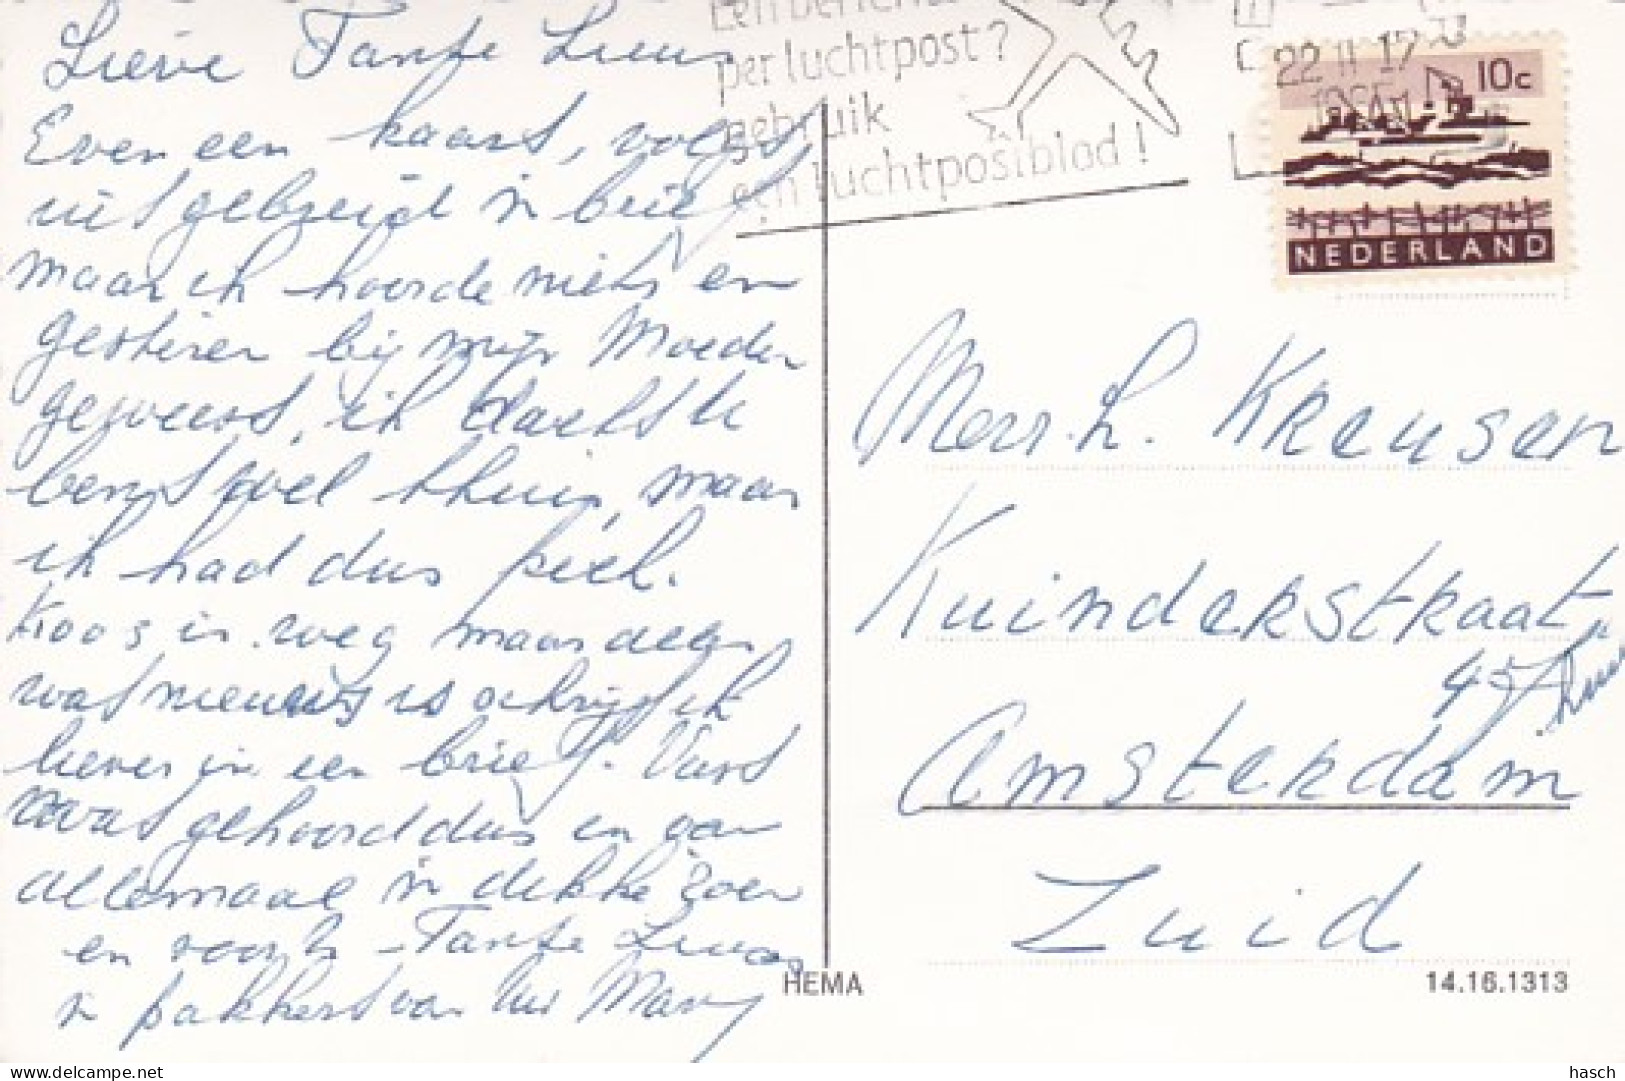 Lieve Tante Lucas
Even een kaart, volgt
uitgebreid in brief
maar ik hoorde niets en
gisteren bij mijn Moeder
geweest, ik dacht U
bent wel thuis, maar
ik had dus pech.
Koos is weg maar alles
wat nieuws is schrijf ik
liever in een brief. Vast
wat gehoord dus en aan
allemaal 'n dikke zoen
en voor U Tante Lucas
'n pakkerd van Uw Mary
Een bericht
per luchtpost?
gebruik
een luchtpostblad!
22 II 17
10c
NEDERLAND
Mevr. L. Kreusen
Kuinderstraat
45
Amsterdam
Zuid
HEMA
14.16.1313
hasch